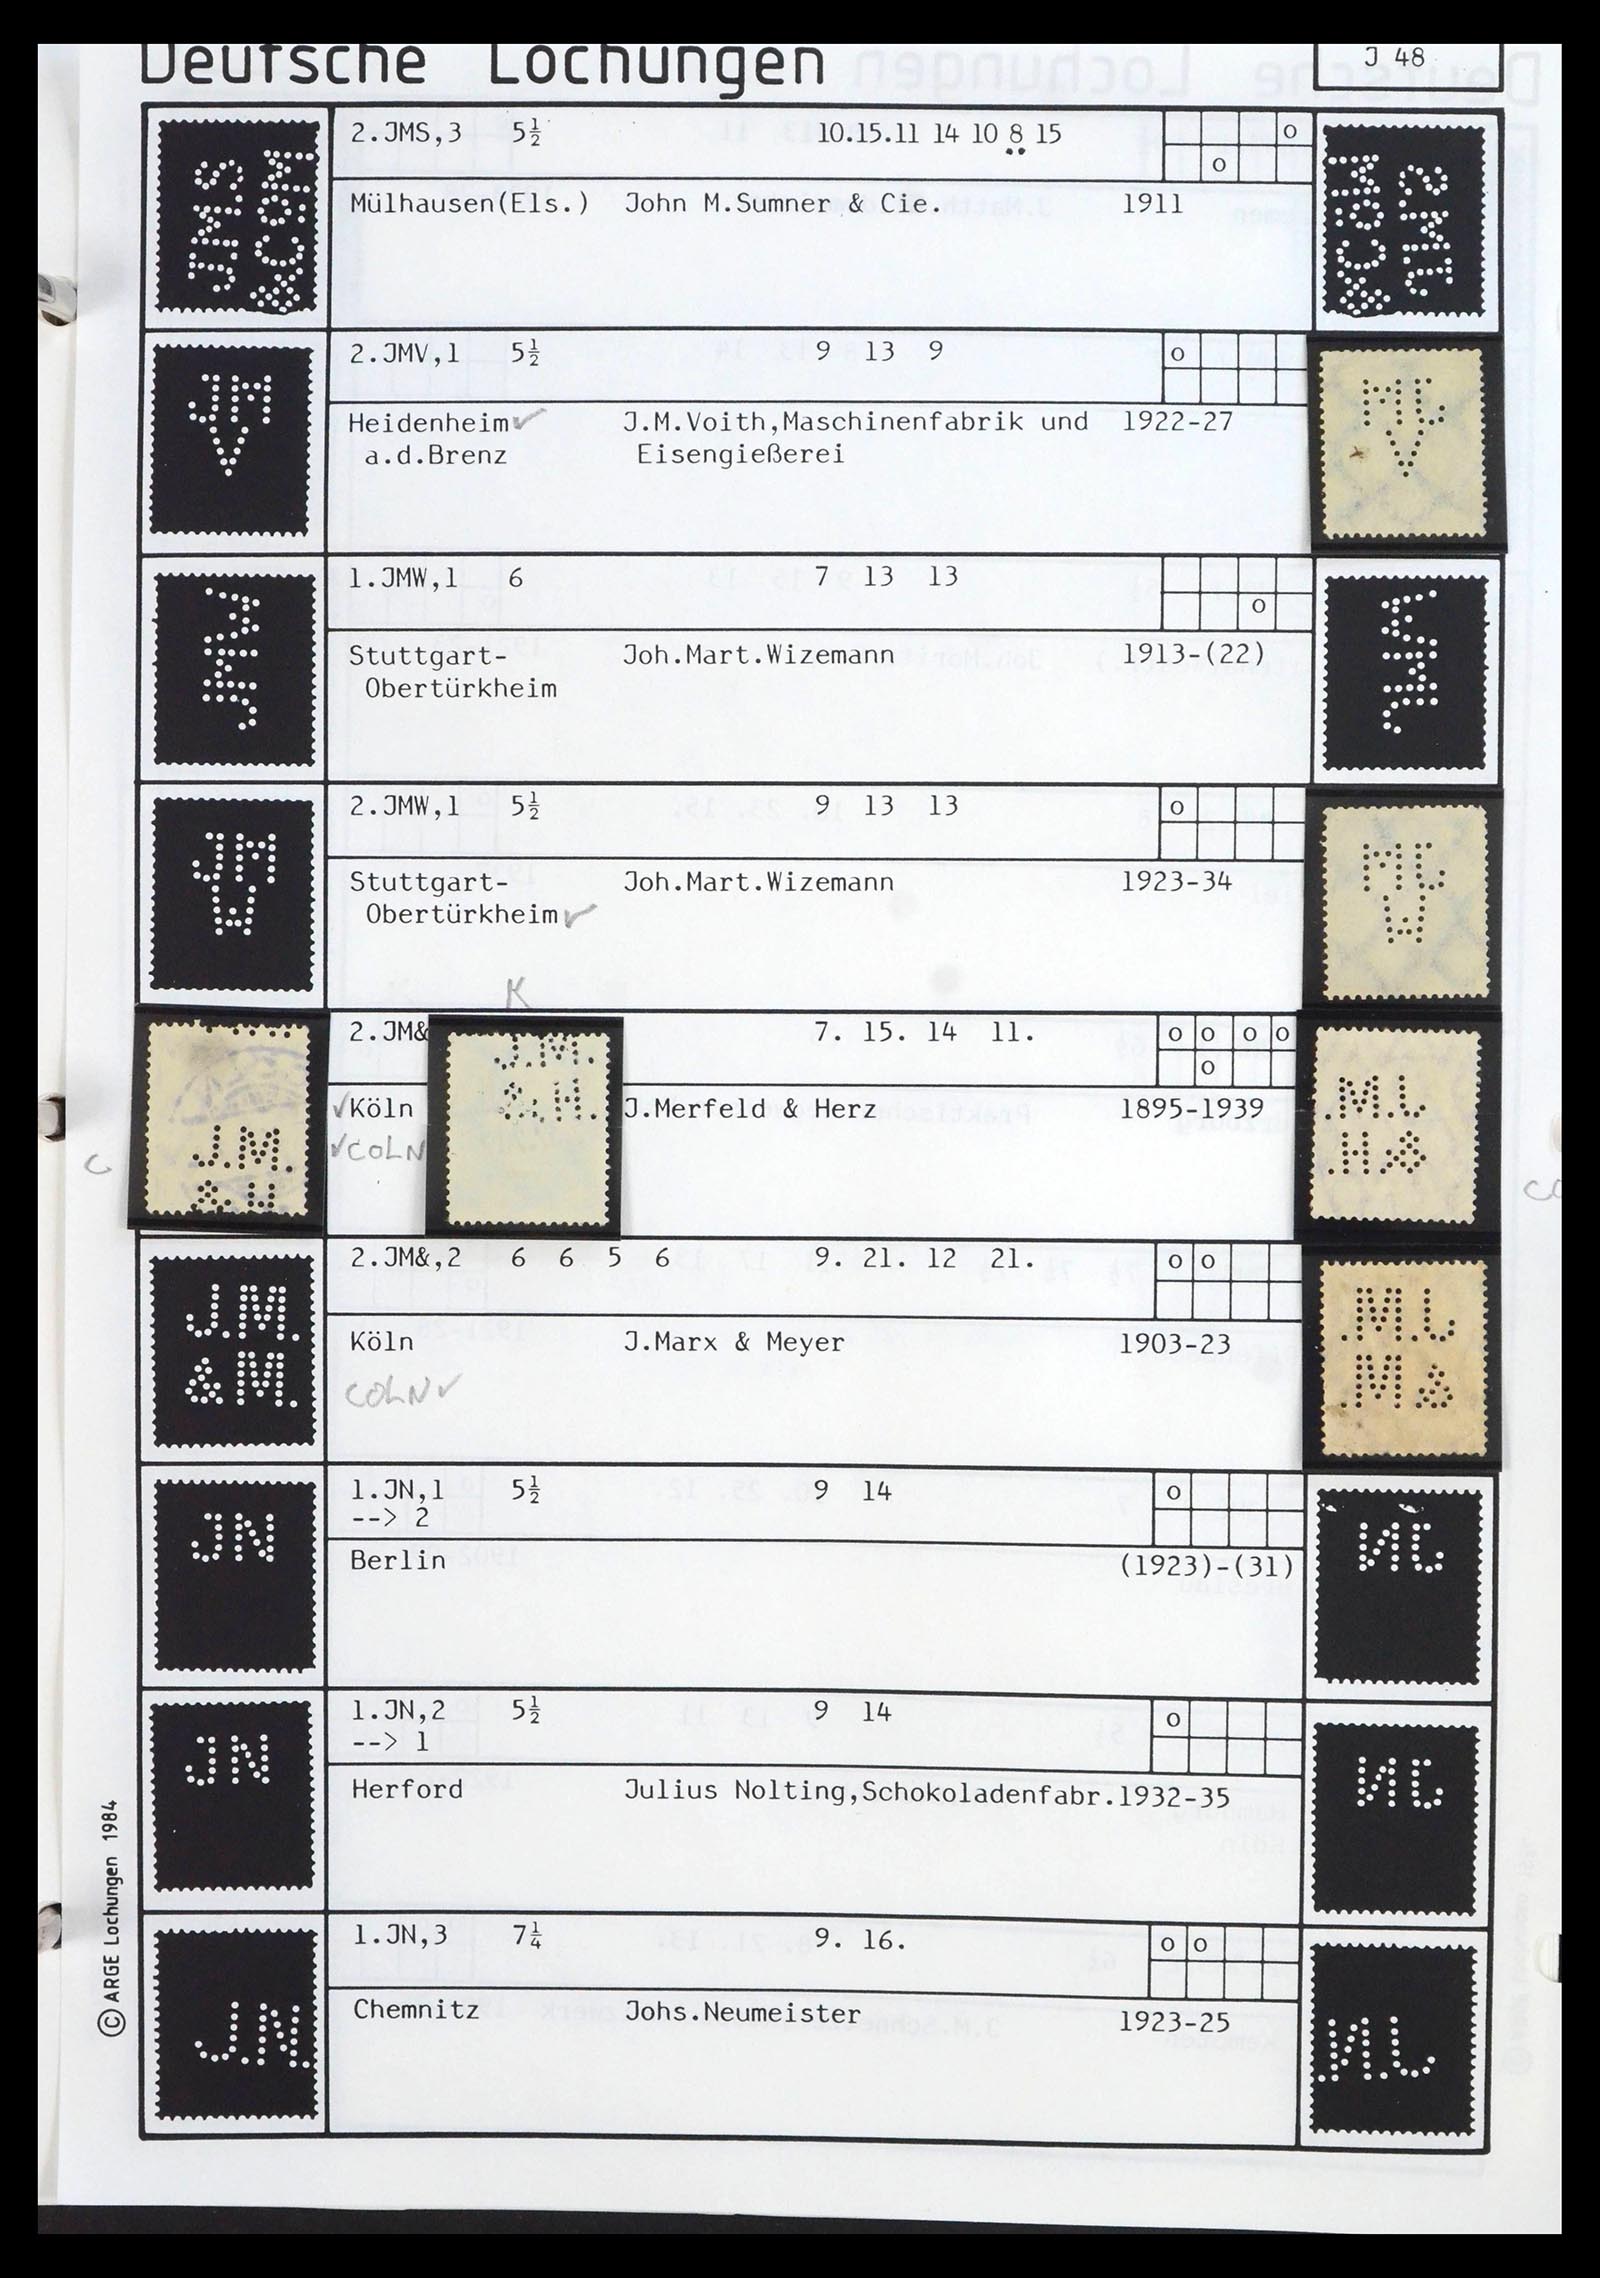 Deutsche Lochungen
J 48
2.JMS,3 5½ 10.15.11 14 10 8 15 o
o
Mülhausen(Els.) John M.Sumner & Cie. 1911
JMS
&CoM
2.JMV,1 5½ 9 13 9 o
Heidenheim✓ J.M.Voith,Maschinenfabrik und 1922-27
a.d.Brenz Eisengießerei
JM
V
1.JMW,1 6 7 13 13
o
Stuttgart- Joh.Mart.Wizemann 1913-(22)
Obertürkheim
JMW
2.JMW,1 5½ 9 13 13 o
Stuttgart- Joh.Mart.Wizemann 1923-34
Obertürkheim✓
JM
W
K
2.JM& 7. 15. 14 11. o o o o
o
✓Köln J.Merfeld & Herz 1895-1939
✓COLN
C
J.M.
&.H.
J.M.
&.H.
2.JM&,2 6 6 5 6 9. 21. 12 21. o o
Köln J.Marx & Meyer 1903-23
COLN✓
J.M.
&M.
1.JN,1 5½ 9 14 o
--> 2
Berlin (1923)-(31)
JN
1.JN,2 5½ 9 14 o
--> 1
Herford Julius Nolting,Schokoladenfabr.1932-35
JN
1.JN,3 7¼ 9. 16. o o
Chemnitz Johs.Neumeister 1923-25
J.N.
© ARGE Lochungen 1984